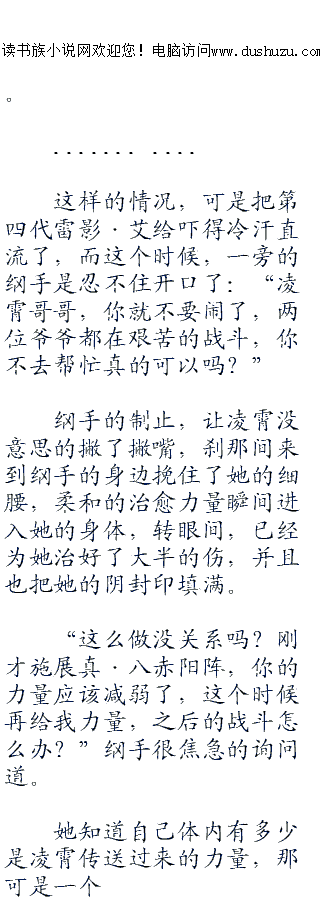 读书族小说网欢迎您！电脑访问www.dushuzu.com
。
....... ....
这样的情况，可是把第
四代雷影·艾给吓得冷汗直
流了，而这个时候，一旁的
纲手是忍不住开口了：“凌
霄哥哥，你就不要闹了，两
位爷爷都在艰苦的战斗，你
不去帮忙真的可以吗？”
纲手的制止，让凌霄没
意思的撇了撇嘴，刹那间来
到纲手的身边挽住了她的细
腰，柔和的治愈力量瞬间进
入她的身体，转眼间，已经
为她治好了大半的伤，并且
也把她的阴封印填满。
“这么做没关系吗？刚
才施展真·八赤阳阵，你的
力量应该减弱了，这个时候
再给我力量，之后的战斗怎
么办？”纲手很焦急的询问
道。
她知道自己体内有多少
是凌霄传送过来的力量，那
可是一个